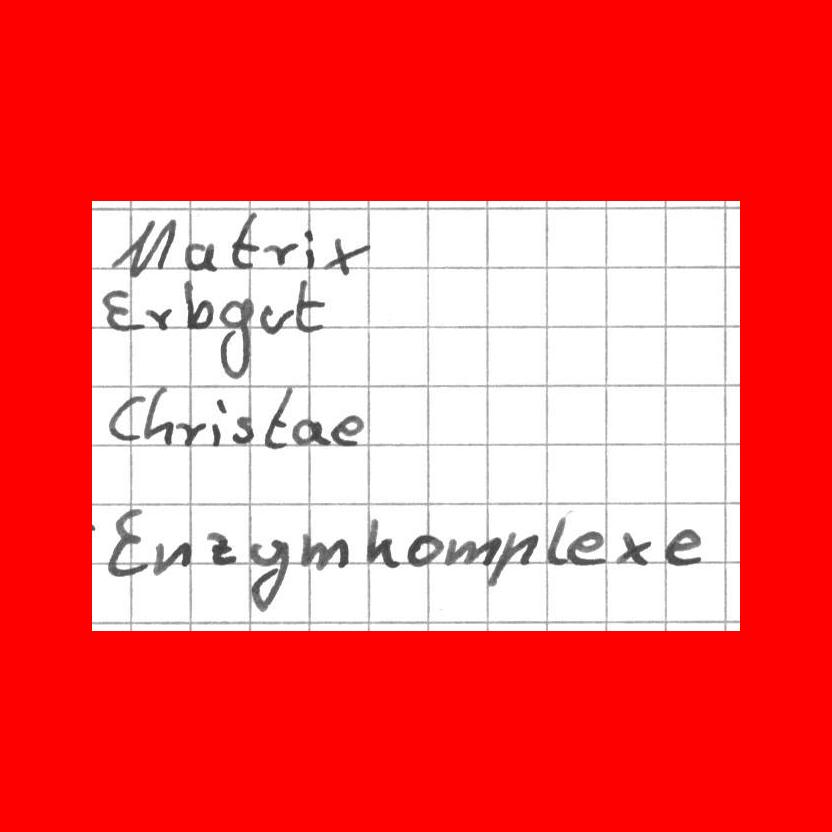 Matrix
Erbgut
Christae
Enzymkomplexe